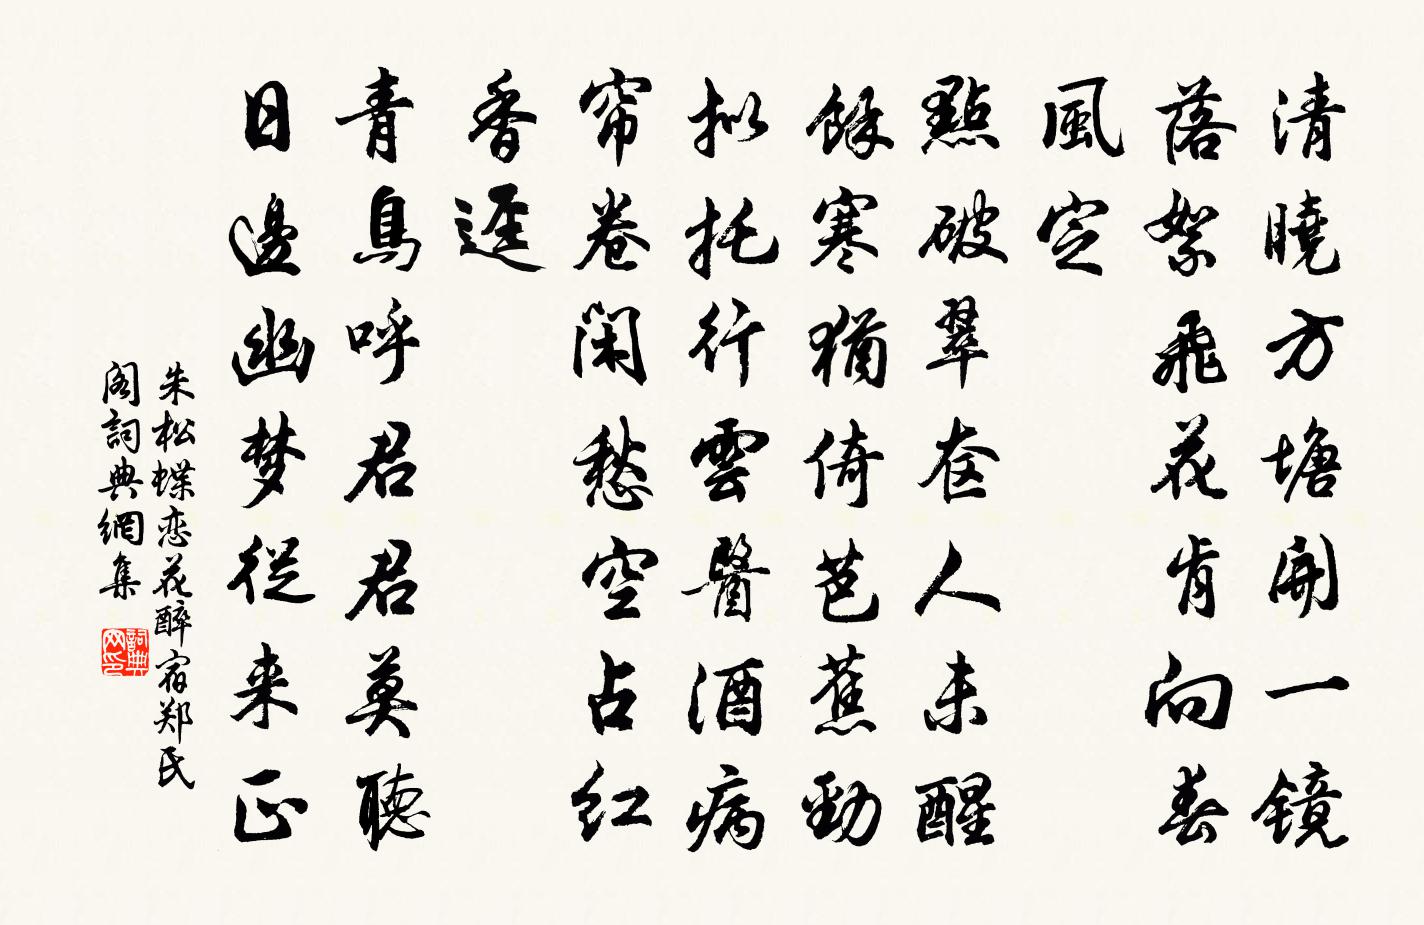 清曉方塘開一镜
落絮飛花肯向春
風定
點破翠奁人未醒
餘寒猶倚芭蕉勁
拟托行雲醫酒病
帘卷闲愁空占红
香逕
青鳥呼君君莫聽
日邊幽梦從来正
朱松蝶恋花醉宿郑氏
阁詞典網集
詞典网印